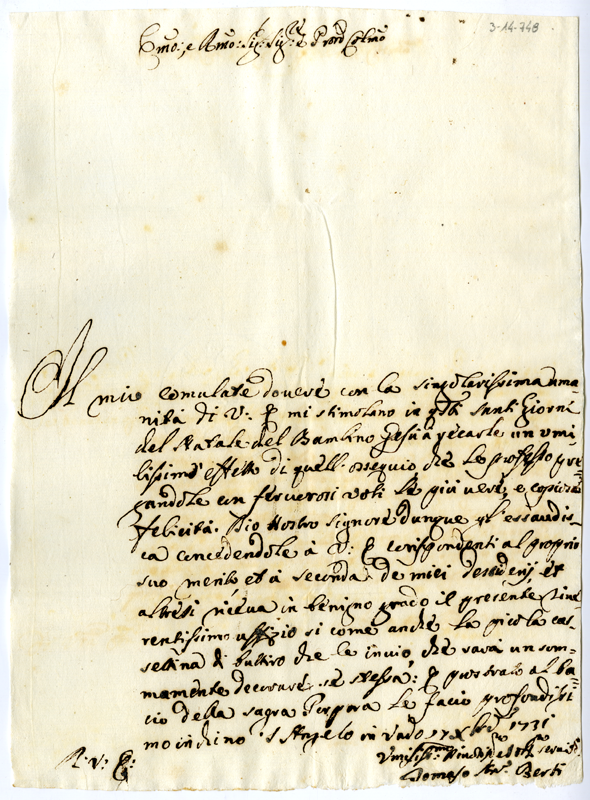 3-14-748
Emo: e Rmo: Sig: Sig:re Pron Colmo
Il mio comulato dovere con la singolarissima uma-
nità di V: E mi stimolano in questi Santi Giorni
del Natale del Bambino Gesù a recarle un umi
lissimo effetto di quell' ossequio che Le professo pre
candole con fervorosi voti le più vere, e copiose
felicità. Dio Nostro Signore dunque gl' essaudis-
ca concedendole à V: E corispondenti al proprio
suo merito et à seconda de miei dessiderj, et
altresì riceva in benigno grado il presente rive
rentissimo uffizio si come anche la picola cas-
settina di buttiro che le invio che sarà un som-
mamente decorare se stessa: e prostrato al ba-
cio della sagra Porpora Le faccio profondissi
mo inchino S Angelo in Vado 17 Xbre 1731
D: V: E:
Tomaso Ant: Berti